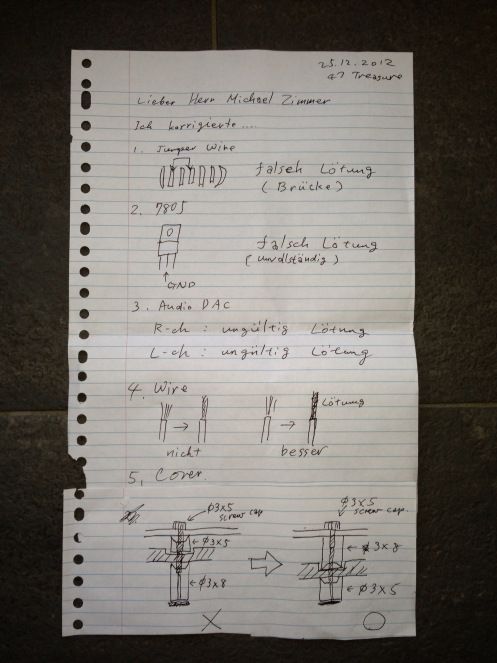 25.12.2012
47 Treasure
Lieber Herr Michael Zimmer
Ich korrigierte....
1. Jumper Wire
falsch Lötung
(Brücke)
2. 7805
falsch Lötung
(unvollständig)
GND
3. Audio DAC
R-ch : ungültig Lötung
L-ch : ungültig Lötung
4. Wire
Lötung
nicht
besser
5. Cover
ø3x5
screw cap
ø3x5
ø3x8
ø3x5
screw cap.
ø3x8
ø3x5